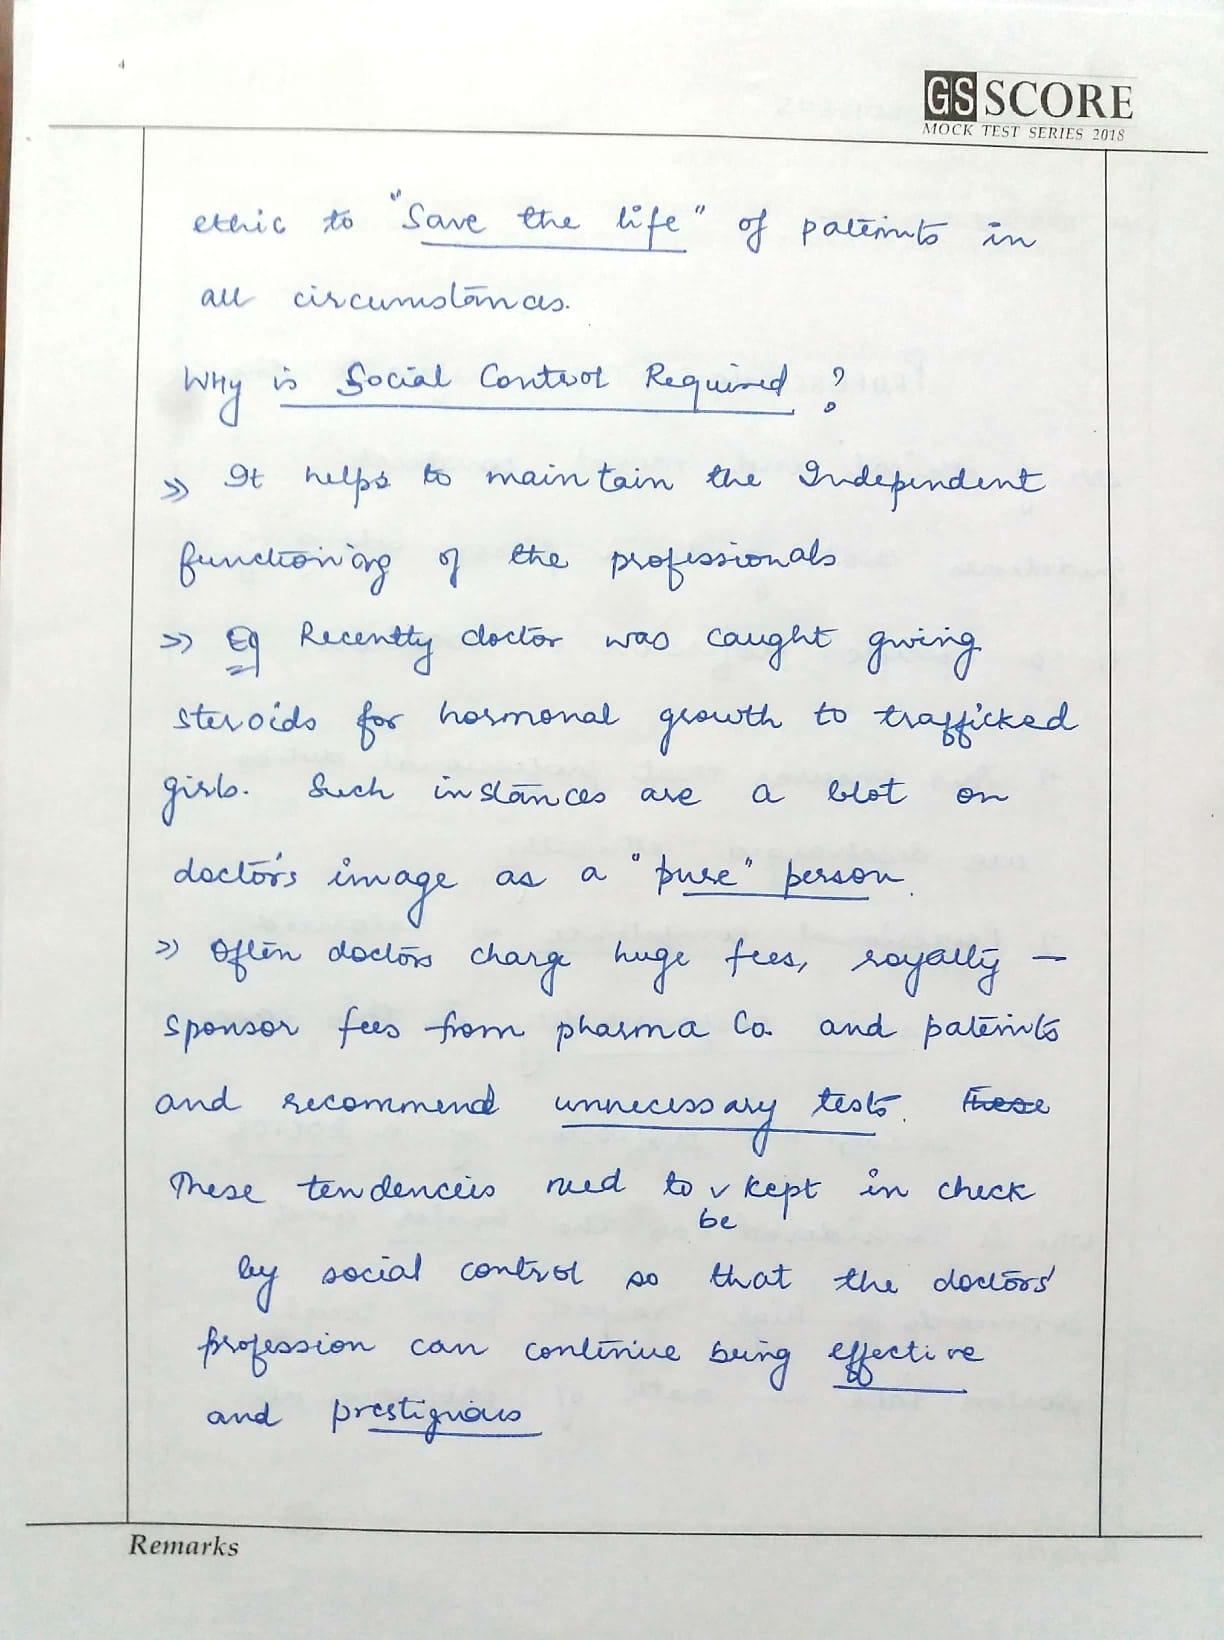 4
GS SCORE
MOCK TEST SERIES 2018
ethic to "Save the life" of pateints in
all circumstances.
Why is Social Control Required ?
>> It helps to maintain the Independent
functioning of the professionals
>> Eg Recently doctor was caught giving
steroids for hormonal growth to trafficked
girls. Such instances are a blot on
doctor's image as a "pure" person.
>> Often doctors charge huge fees, royalty –
sponsor fees from pharma Co. and pateints
and recommend unnecessary tests. These
These tendenceis need to be kept in check
by social control so that the doctors'
profession can continue being effective
and prestiguious
Remarks